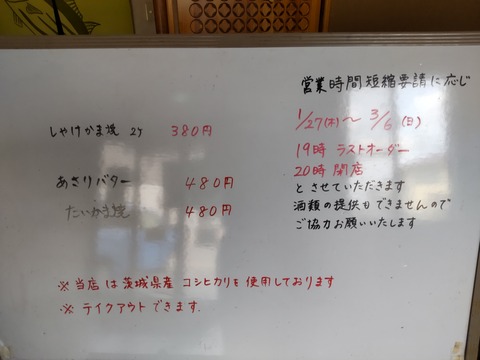 営業時間短縮要請に応じ
1/27(木)〜3/6(日)
19時 ラストオーダー
20時 閉店
とさせていただきます
酒類の提供もできませんので
ご協力お願いいたします
しゃけかま焼 2ケ 380円
あさりバター 480円
たいかま焼 480円
※当店は茨城県産 コシヒカリを使用しております
※テイクアウトできます.